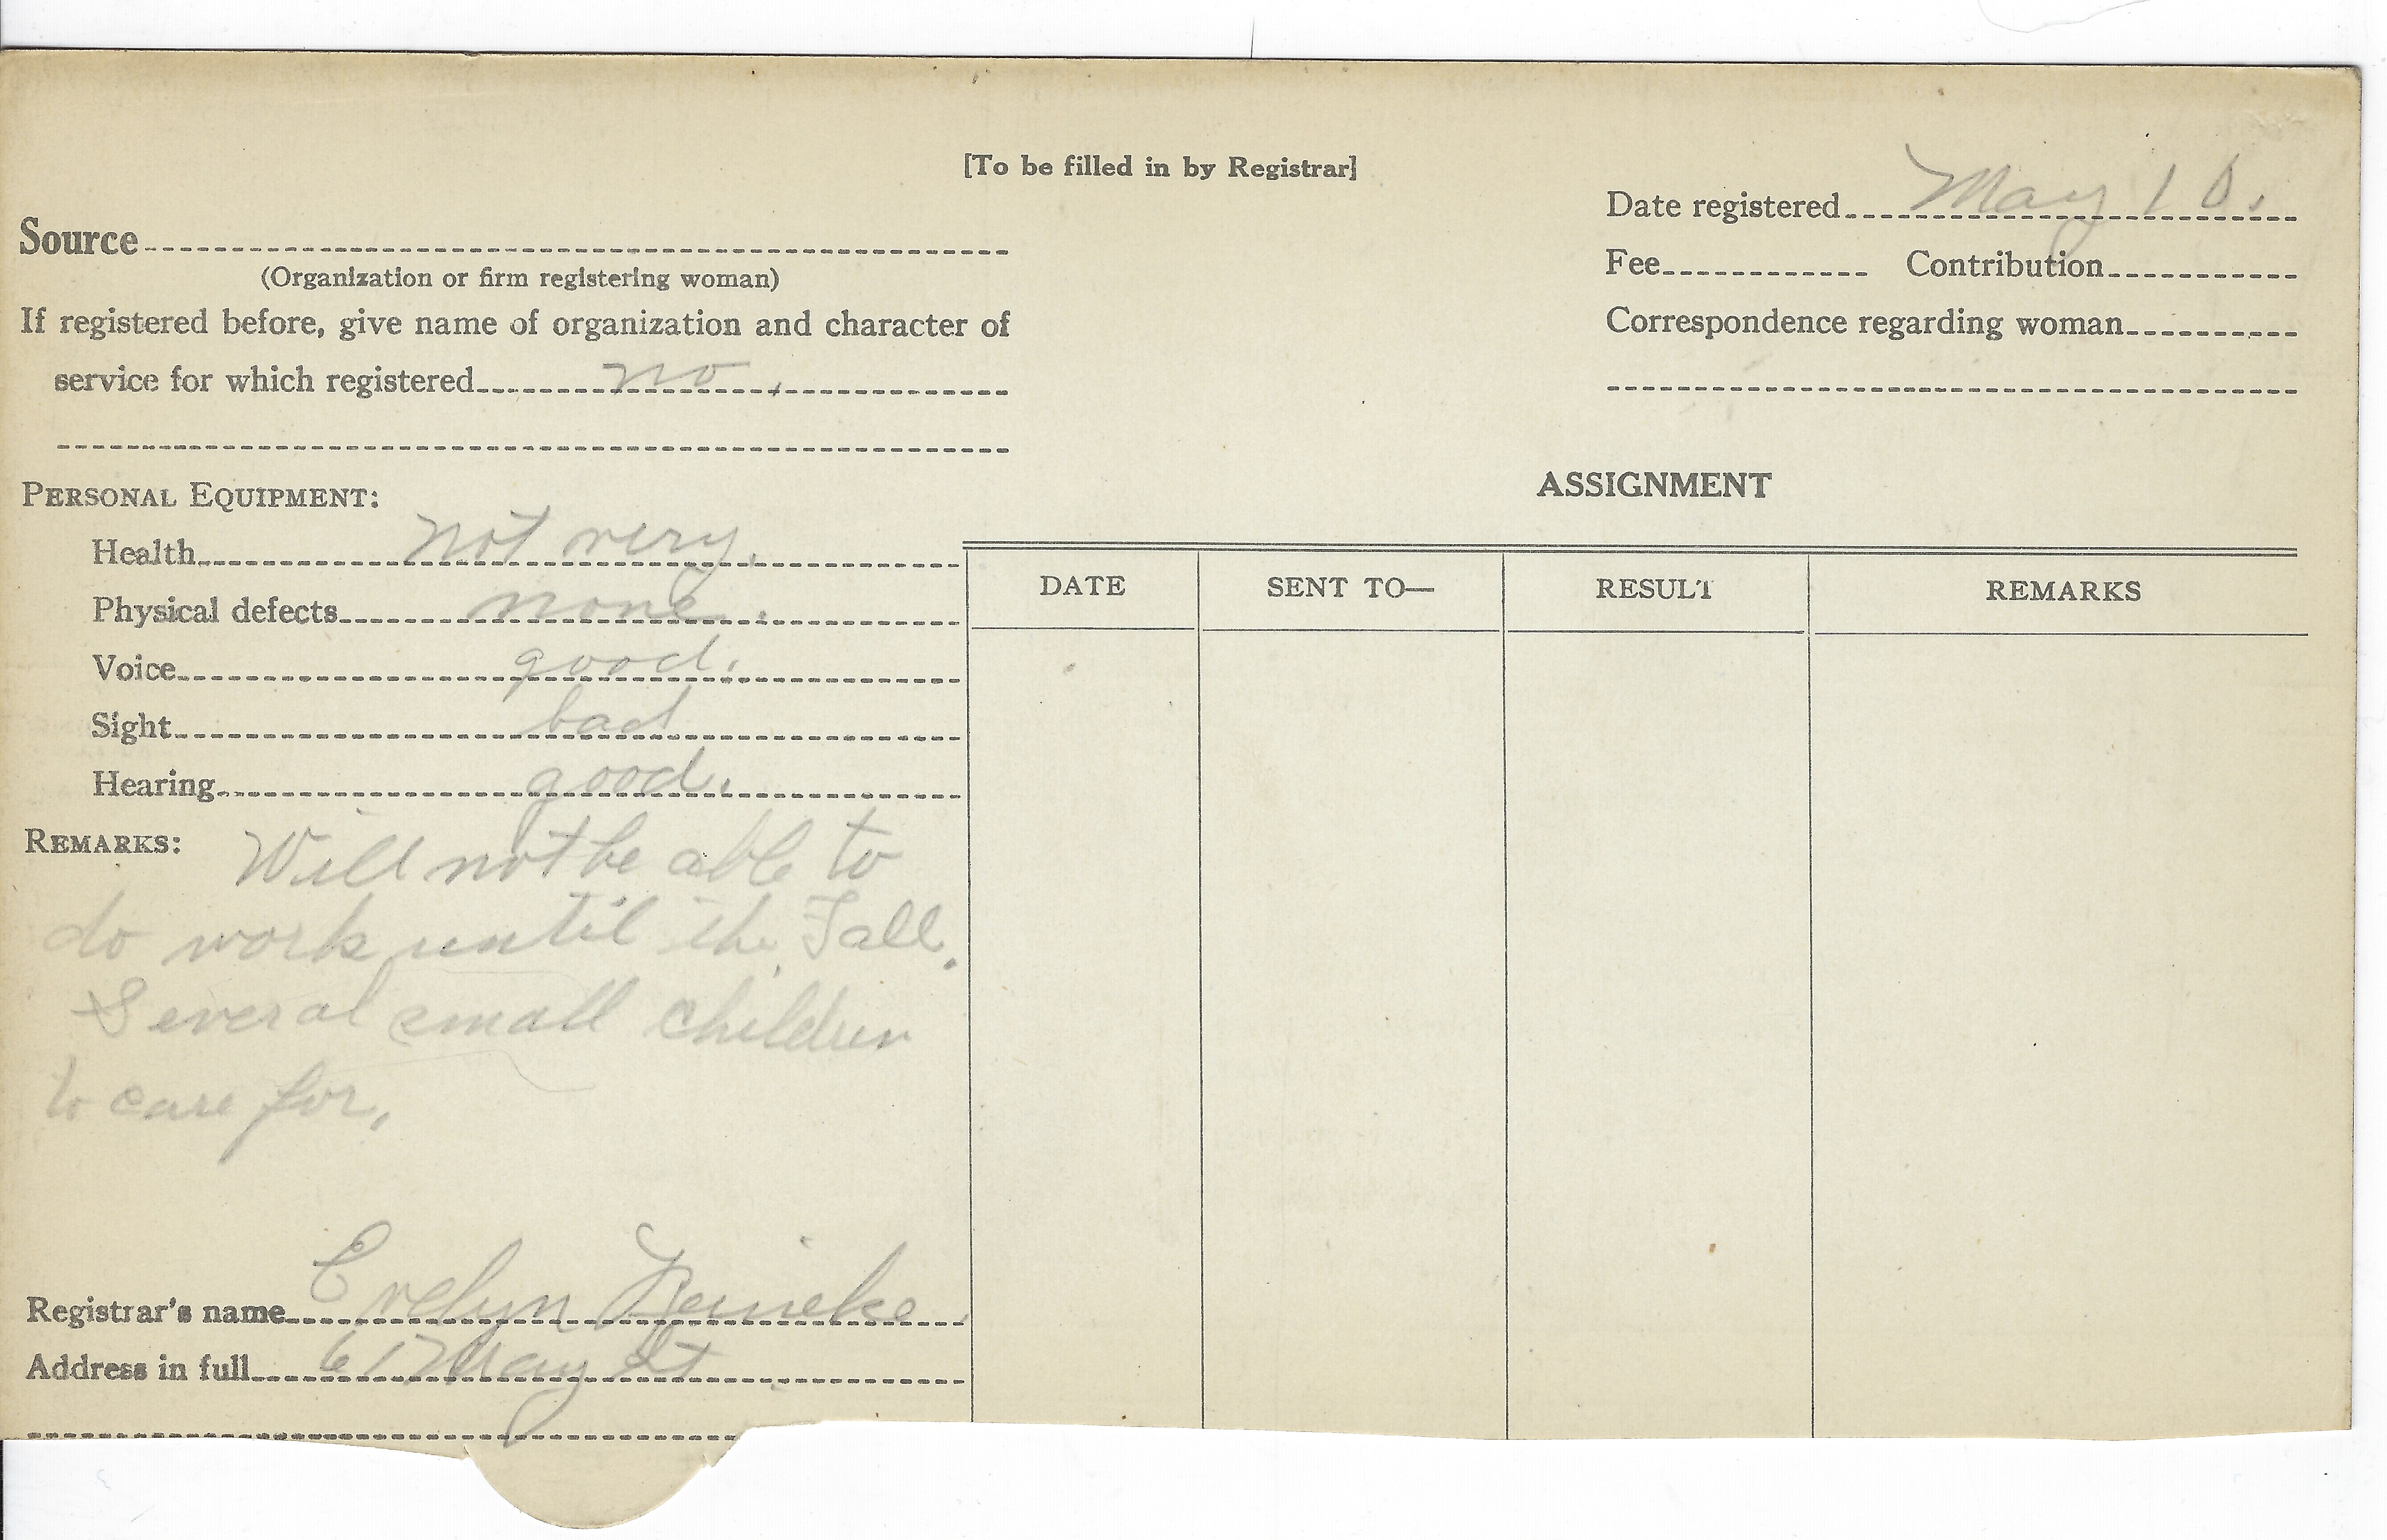 [To be filled in by Registrar]
Date registered May 10.
Source
(Organization or firm registering woman)
Fee Contribution
If registered before, give name of organization and character of
service for which registered no.
Correspondence regarding woman
PERSONAL EQUIPMENT:
Health not very.
Physical defects none.
Voice good.
Sight bad
Hearing good.
REMARKS: Will not be able to
do work until the Fall.
Several small children
to care for.
Registrar's name Evelyn Reineke.
Address in full 617 May St.
ASSIGNMENT
DATE SENT TO— RESULT REMARKS